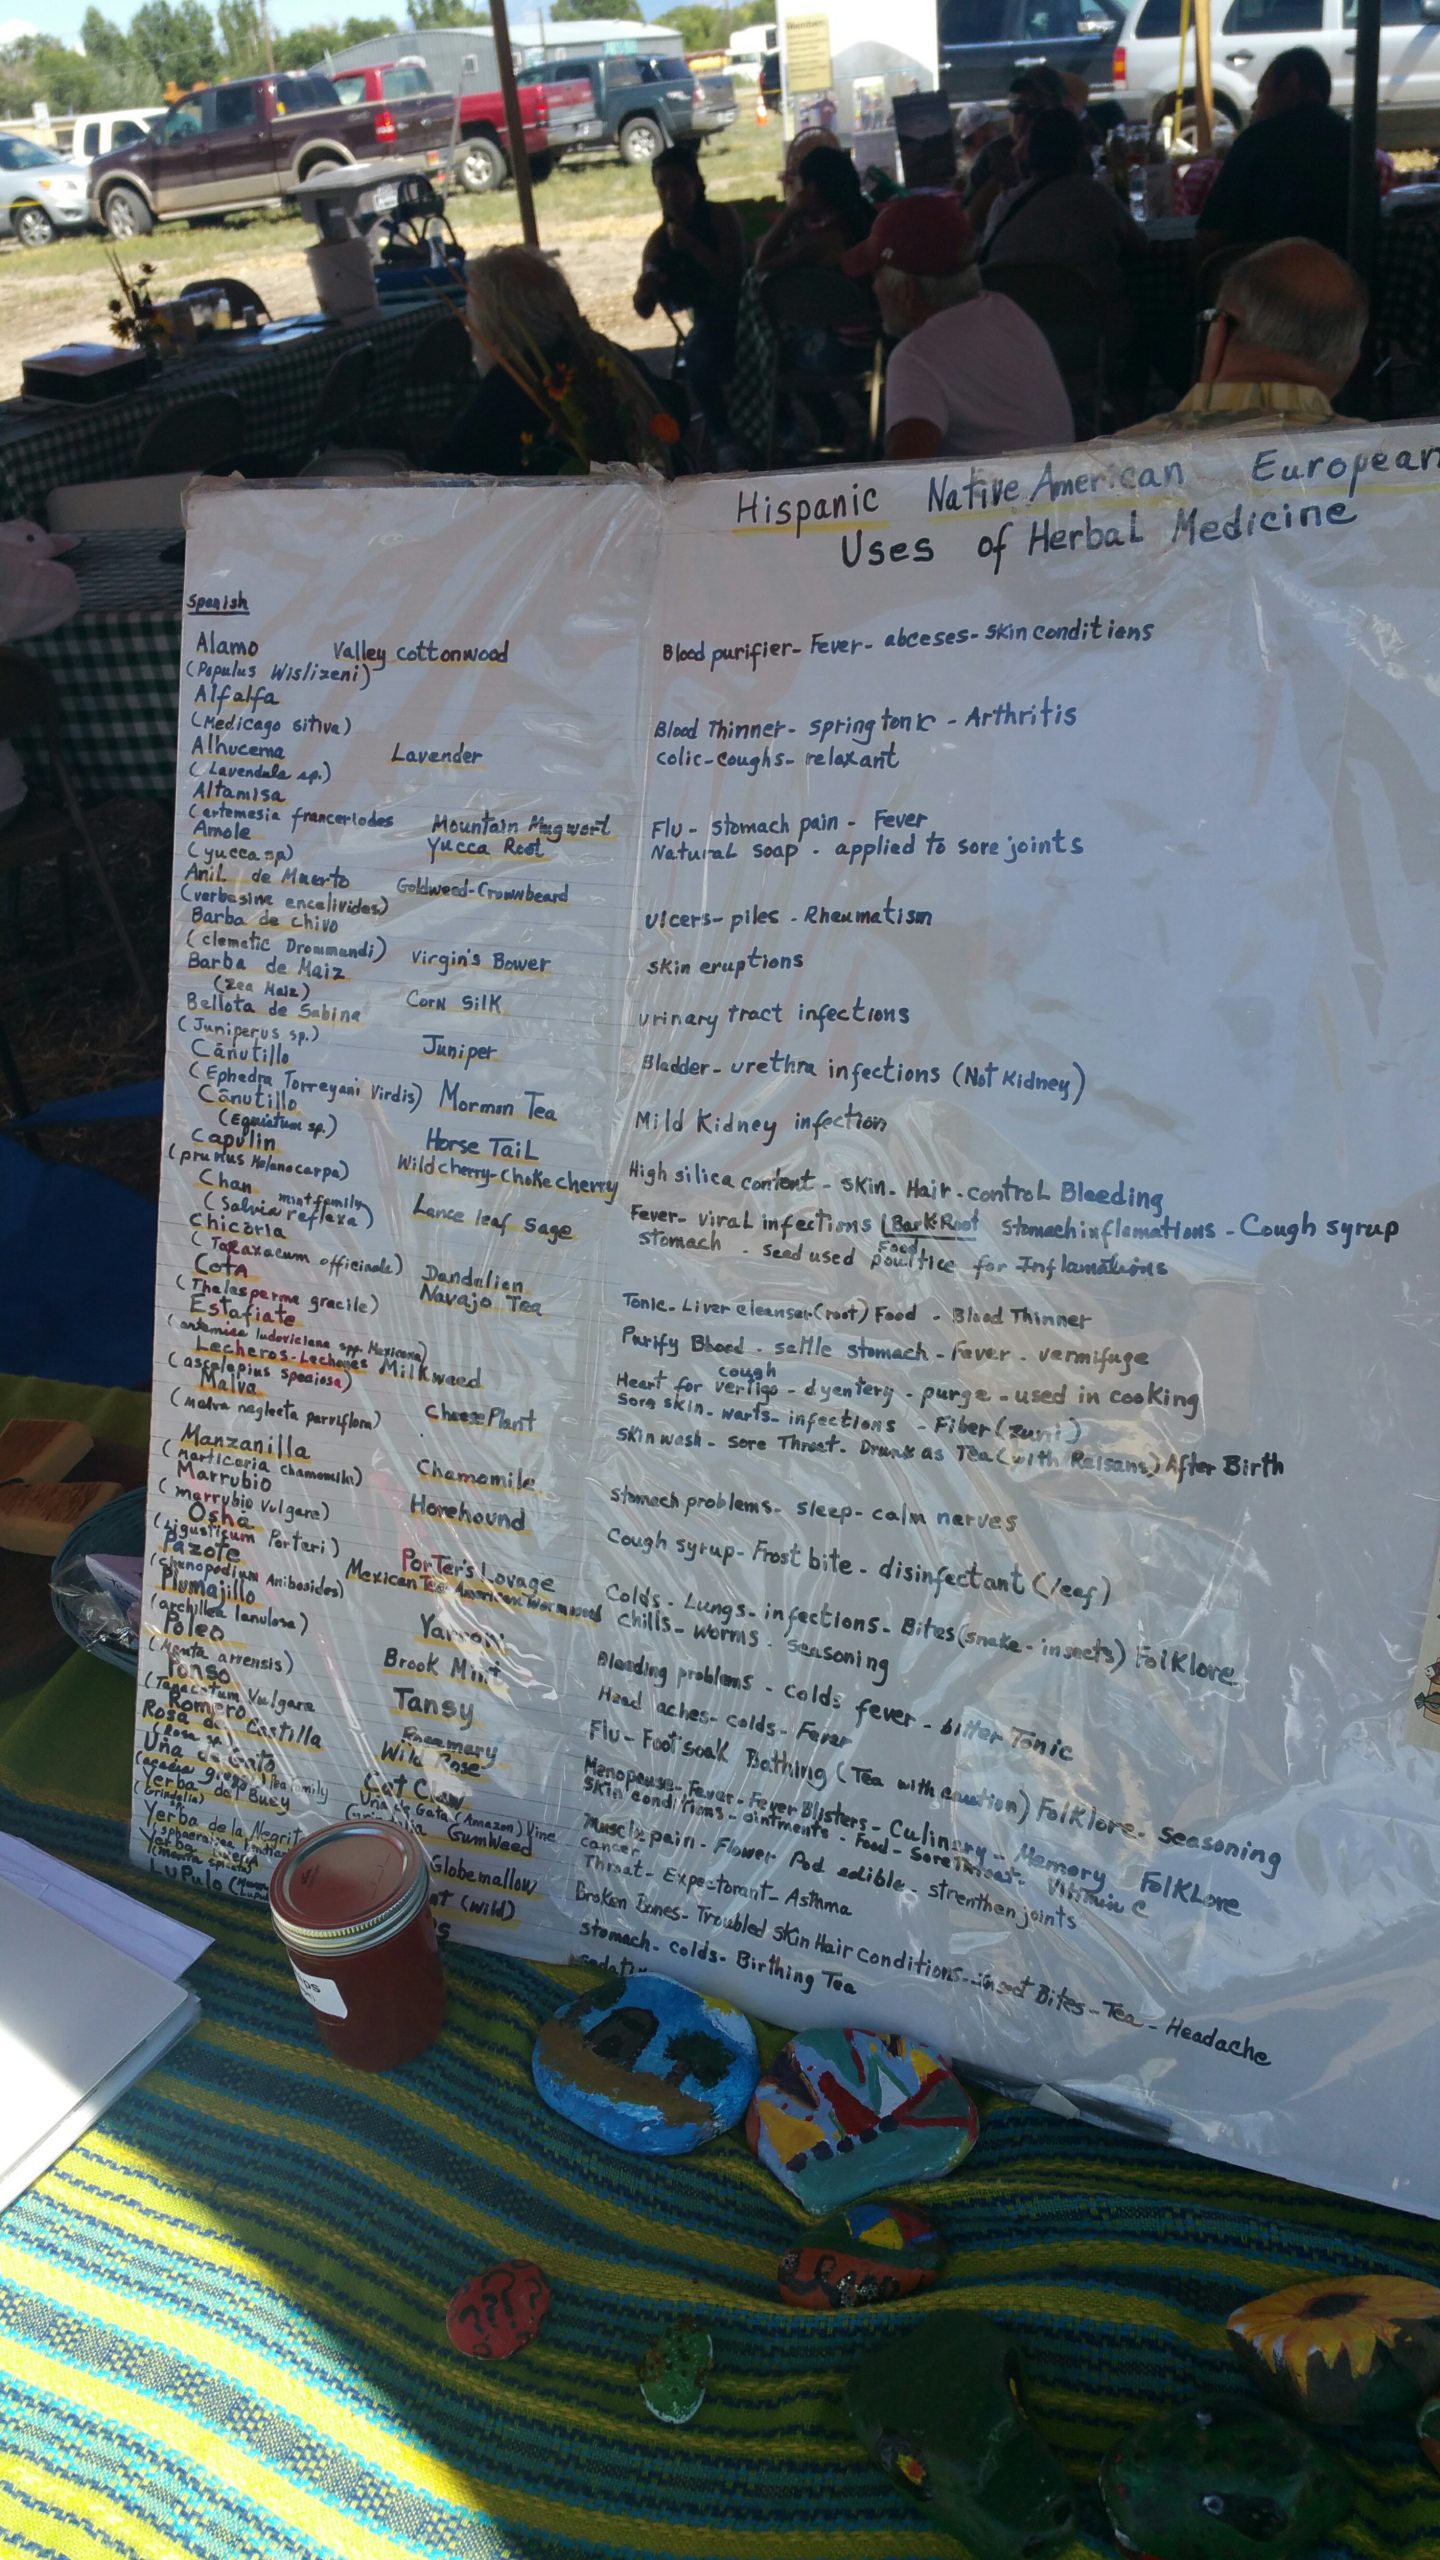 Hispanic Native American European
Uses of Herbal Medicine
Spanish
Alamo Valley cottonwood Blood purifier- Fever- abceses- skin conditions
(Populus Wislizeni)
Alfalfa
(Medicago sitiva) Blood Thinner- spring tonic - Arthritis
Alhucema Lavender colic-coughs- relaxant
(Lavendula sp.)
Altamisa
(artemesia franceriodes Mountain Mugwort Flu- stomach pain - Fever
Amole Yucca Root Natural soap - applied to sore joints
(yucca sp)
Anil de Muerto Goldweed-Crownbeard
(verbesine encelivides) ulcers- piles - Rheumatism
Barba de chivo
(clematic Drommandi) Virgin's Bower skin eruptions
Barba de Maiz
(Zea Maiz) Corn Silk urinary tract infections
Bellota de Sabina
(Juniperus sp.) Juniper Bladder- urethra infections (Not Kidney)
Cañutillo
(Ephedra Torreyani Virdis) Mormon Tea Mild Kidney infection
Cañutillo
(Equistum sp.) Horse Tail High silica content - skin- Hair- control Bleeding
Capulin Wild cherry-Choke cherry Fever- viral infections (Bark-Root Stomach inflamations - Cough syrup
(prunus Melanocarpa) Food
Chan mint family Lance leaf Sage stomach - seed used poultice for Inflamations
(Salvia reflexa)
Chicoria
(Taraxacum officinale) Dandelien Tonic- Liver cleanser(root) Food - Blood Thinner
Cota Navajo Tea Purify Blood - settle stomach - Fever - vermifuge
(Thelesperma gracile) cough
Estafiate Heart for vertigo - dyentery - purge - used in cooking
(artemisa ludoviciana spp. Mexicana)
Lecheros-Lechones Milkweed Sore skin- warts- infections - Fiber (zuni)
(ascelepius speciosa)
Malva Cheese Plant skin wash - Sore Throat- Drunk as Tea (with Raisans) After Birth
(Malva neglecta parviflora)
Manzanilla Chamomile stomach problems- sleep- calm nerves
Marrubio Horehound Cough syrup- Frost bite - disinfectant (leaf)
(marrubio Vulgare)
Osha Porter's Lovage Colds - Lungs- infections- Bites (snake - insects) Folklore
(Ligusticum Porteri)
Pazote Mexican Tea American Wormseed chills- worms - seasoning
Plumajillo Yarrow Bleeding problems - colds fever - bitter Tonic
(archillea lanulosa)
Poleo Brook Mint Head aches- colds- Fever
(Menta arrensis)
Ponso Tansy Flu- Foot soak Bathing (Tea with caution) Folklore- seasoning
(Tanacetum Vulgare
Romero Rosemary Menopause- Fever- Fever Blisters- Culinary- Memory Folklore
Rosa de Castilla Wild Rose Skin conditions - ointments - Food - Sore Throat- Vitamin C
(Rosa sp.)
Uña de Gato Cat Claw Muscle pain - Flower Pod edible - strenthen joints
Pea family Uña de Gato (Amazon) Vine cancer
Yerba del Buey GumWeed Throat- Expectorant- Asthma
(Grindelia)
Yerba de la Negrita Globemallow Broken Bones- Troubled skin Hair conditions- insect Bites- Tea - Headache
Yerba (wild) stomach- colds- Birthing Tea
LuPulo